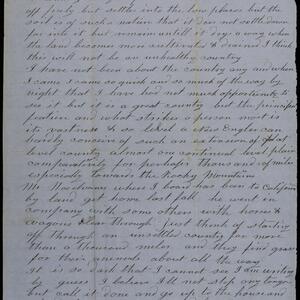 off freely but settles into the low places but the
soil is of such a nature that it does not settle down
far into it but remain until it dry away when
the land becomes more cultivated & drained I think
this will not be an unhealthy country
I have not been about the country any and when
I came I came so quick and so much of the way by
night that I have had not much opportunity to
see it but it is a great country but the principal
feature and what strikes a person most is
its vastness & so level a New Engler can
hardly conceive of such an extension of flat
level country almost one continued level plain
comparatively for perhaps Thousand of miles
especially towards the Rocky Mountains
Mr where I board has been to California
by land get home last fall he went in
company with some others with horses &
wagons clear through just think of starting
off through an unsettled country for more
than a thousand miles and they find grass
for their animals about all the way
It is so dark that I cannot see I am writing
by guess I believe I'll not stop any longer
but call it done and go up to the house and